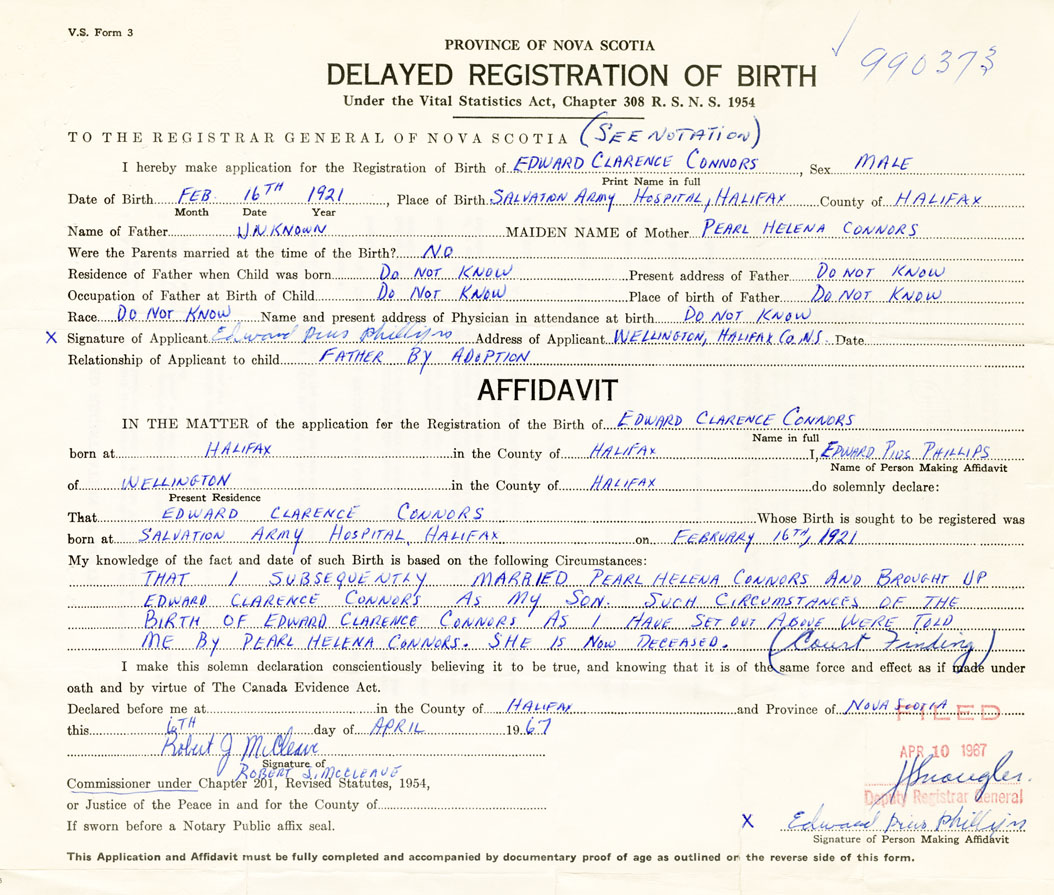 V.S. Form 3
PROVINCE OF NOVA SCOTIA
990373
DELAYED REGISTRATION OF BIRTH
Under the Vital Statistics Act, Chapter 308 R. S. N. S. 1954
TO THE REGISTRAR GENERAL OF NOVA SCOTIA (SEE NOTATION)
I hereby make application for the Registration of Birth of EDWARD CLARENCE CONNORS, Sex MALE
Print Name in full
Date of Birth FEB. 16TH 1921, Place of Birth SALVATION ARMY HOSPITAL, HALIFAX County of HALIFAX
Month Date Year
Name of Father UNKNOWN MAIDEN NAME of Mother PEARL HELENA CONNORS
Were the Parents married at the time of the Birth? NO
Residence of Father when Child was born DO NOT KNOW Present address of Father DO NOT KNOW
Occupation of Father at Birth of Child DO NOT KNOW Place of birth of Father DO NOT KNOW
Race DO NOT KNOW Name and present address of Physician in attendance at birth DO NOT KNOW
X Signature of Applicant Edward Pius Phillips Address of Applicant WELLINGTON, HALIFAX CO. N.S. Date
Relationship of Applicant to child FATHER BY ADOPTION
AFFIDAVIT
IN THE MATTER of the application for the Registration of the Birth of EDWARD CLARENCE CONNORS
Name in full
born at HALIFAX in the County of HALIFAX I, EDWARD PIUS PHILLIPS
Name of Person Making Affidavit
of WELLINGTON in the County of HALIFAX do solemnly declare:
Present Residence
That EDWARD CLARENCE CONNORS Whose Birth is sought to be registered was
born at SALVATION ARMY HOSPITAL, HALIFAX on FEBRUARY 16TH, 1921
My knowledge of the fact and date of such Birth is based on the following Circumstances:
THAT I SUBSEQUENTLY MARRIED PEARL HELENA CONNORS AND BROUGHT UP
EDWARD CLARENCE CONNORS AS MY SON. SUCH CIRCUMSTANCES OF THE
BIRTH OF EDWARD CLARENCE CONNORS AS I HAVE SET OUT ABOVE WERE TOLD
ME BY PEARL HELENA CONNORS. SHE IS NOW DECEASED. (Court Finding)
I make this solemn declaration conscientiously believing it to be true, and knowing that it is of the same force and effect as if made under
oath and by virtue of The Canada Evidence Act.
Declared before me at in the County of HALIFAX and Province of NOVA SCOTIA
FILED
this 6TH day of APRIL 1967
Robert J McCleave
APR 10 1967
Signature of
ROBERT J. MCCLEAVE
Commissioner under Chapter 201, Revised Statutes, 1954,
Deputy Registrar General
or Justice of the Peace in and for the County of
If sworn before a Notary Public affix seal.
X Edward Pius Phillips
Signature of Person Making Affidavit
This Application and Affidavit must be fully completed and accompanied by documentary proof of age as outlined on the reverse side of this form.